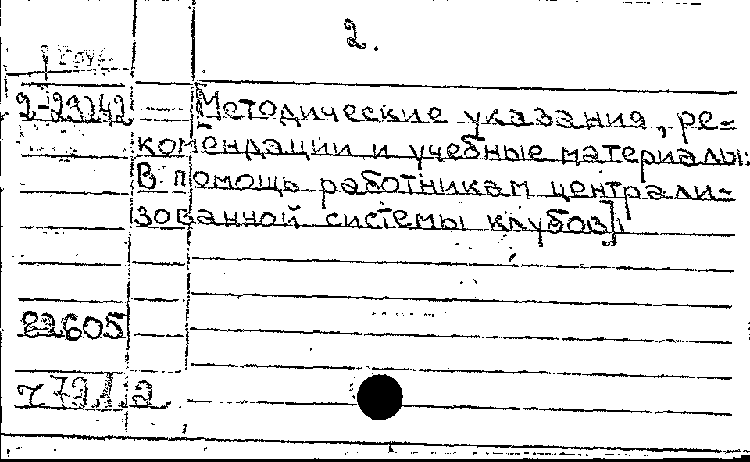 2.
2-29242 Методические указания, ре-
комендации и учебные материалы:
В помощь работникам централи-
зованной системы клубов]
82605
ч 721.2